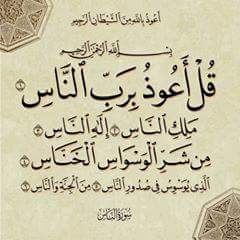 أعوذ بالله من الشيطان الرجيم
بسم الله الرحمن الرحيم
قُلْ أَعُوذُ بِرَبِّ ٱلنَّاسِ ١
مَلِكِ ٱلنَّاسِ ٢ إِلَٰهِ ٱلنَّاسِ ٣
مِن شَرِّ ٱلْوَسْوَاسِ ٱلْخَنَّاسِ ٤
ٱلَّذِى يُوَسْوِسُ فِى صُدُورِ ٱلنَّاسِ ٥ مِنَ ٱلْجِنَّةِ وَٱلنَّاسِ ٦
سُورَة النَّاس